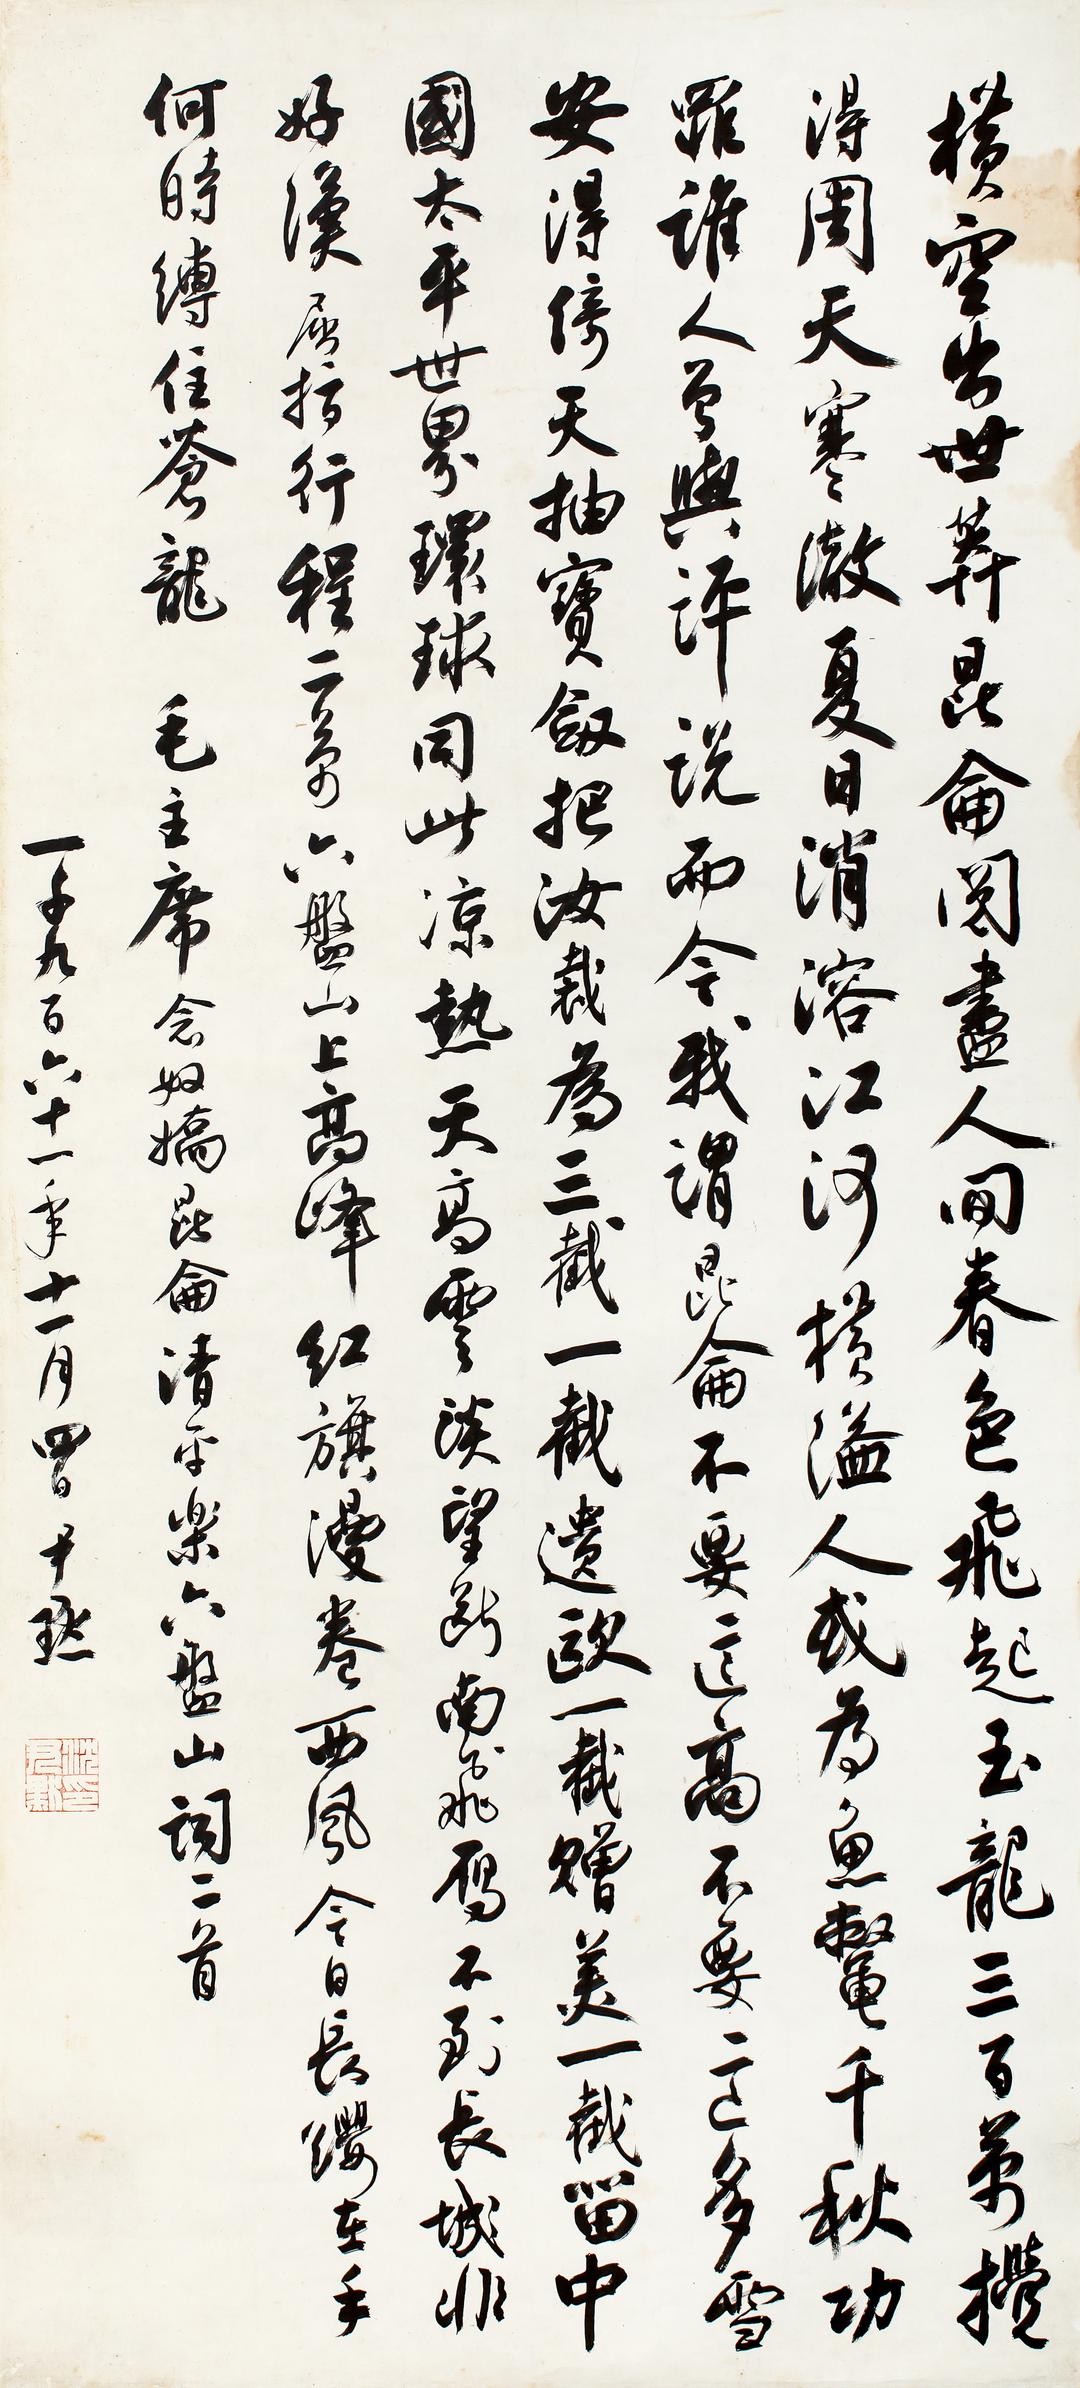 橫空出世莽昆侖閱盡人間春色飛起玉龍三百萬攪
得周天寒澈夏日消溶江河橫溢人或為魚鼈千秋功
罪誰人曾與評說而今我謂昆侖不要這高不要這多雪
安得倚天抽寶劔把汝裁為三截一截遺歐一截贈美一截留中
國太平世界環球同此涼熱天高雲淡望斷南飛雁不到長城非
好漢屈指行程二萬六盤山上高峰紅旗漫卷西風今日長纓在手
何時縛住蒼龍 毛主席念奴嬌昆侖清平樂六盤山詞二首
一千九百六十一年十一月四日尹默
沈尹默印